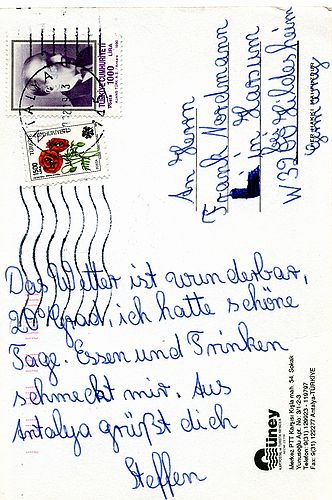 Das Wetter ist wunderbar,
20° Grad, ich hatte schöne
Tage. Essen und Trinken
schmeckt mir. Aus
Antalya grüßt dich
Steffen
An Herrn
Frank Nordmann
in Harsum
bei Hildesheim
W 3200
TÜRKİYE CUMHURİYETİ
1000
LIRA
güney
Merkez PTT Karşısı Kışla mah. 54. Sokak
Yunusoğlu Apt. No: 3/1-2-3
Telefon: 9(31) 129923 - 119797
Fax: 9(31) 122277 Antalya-TÜRKİYE